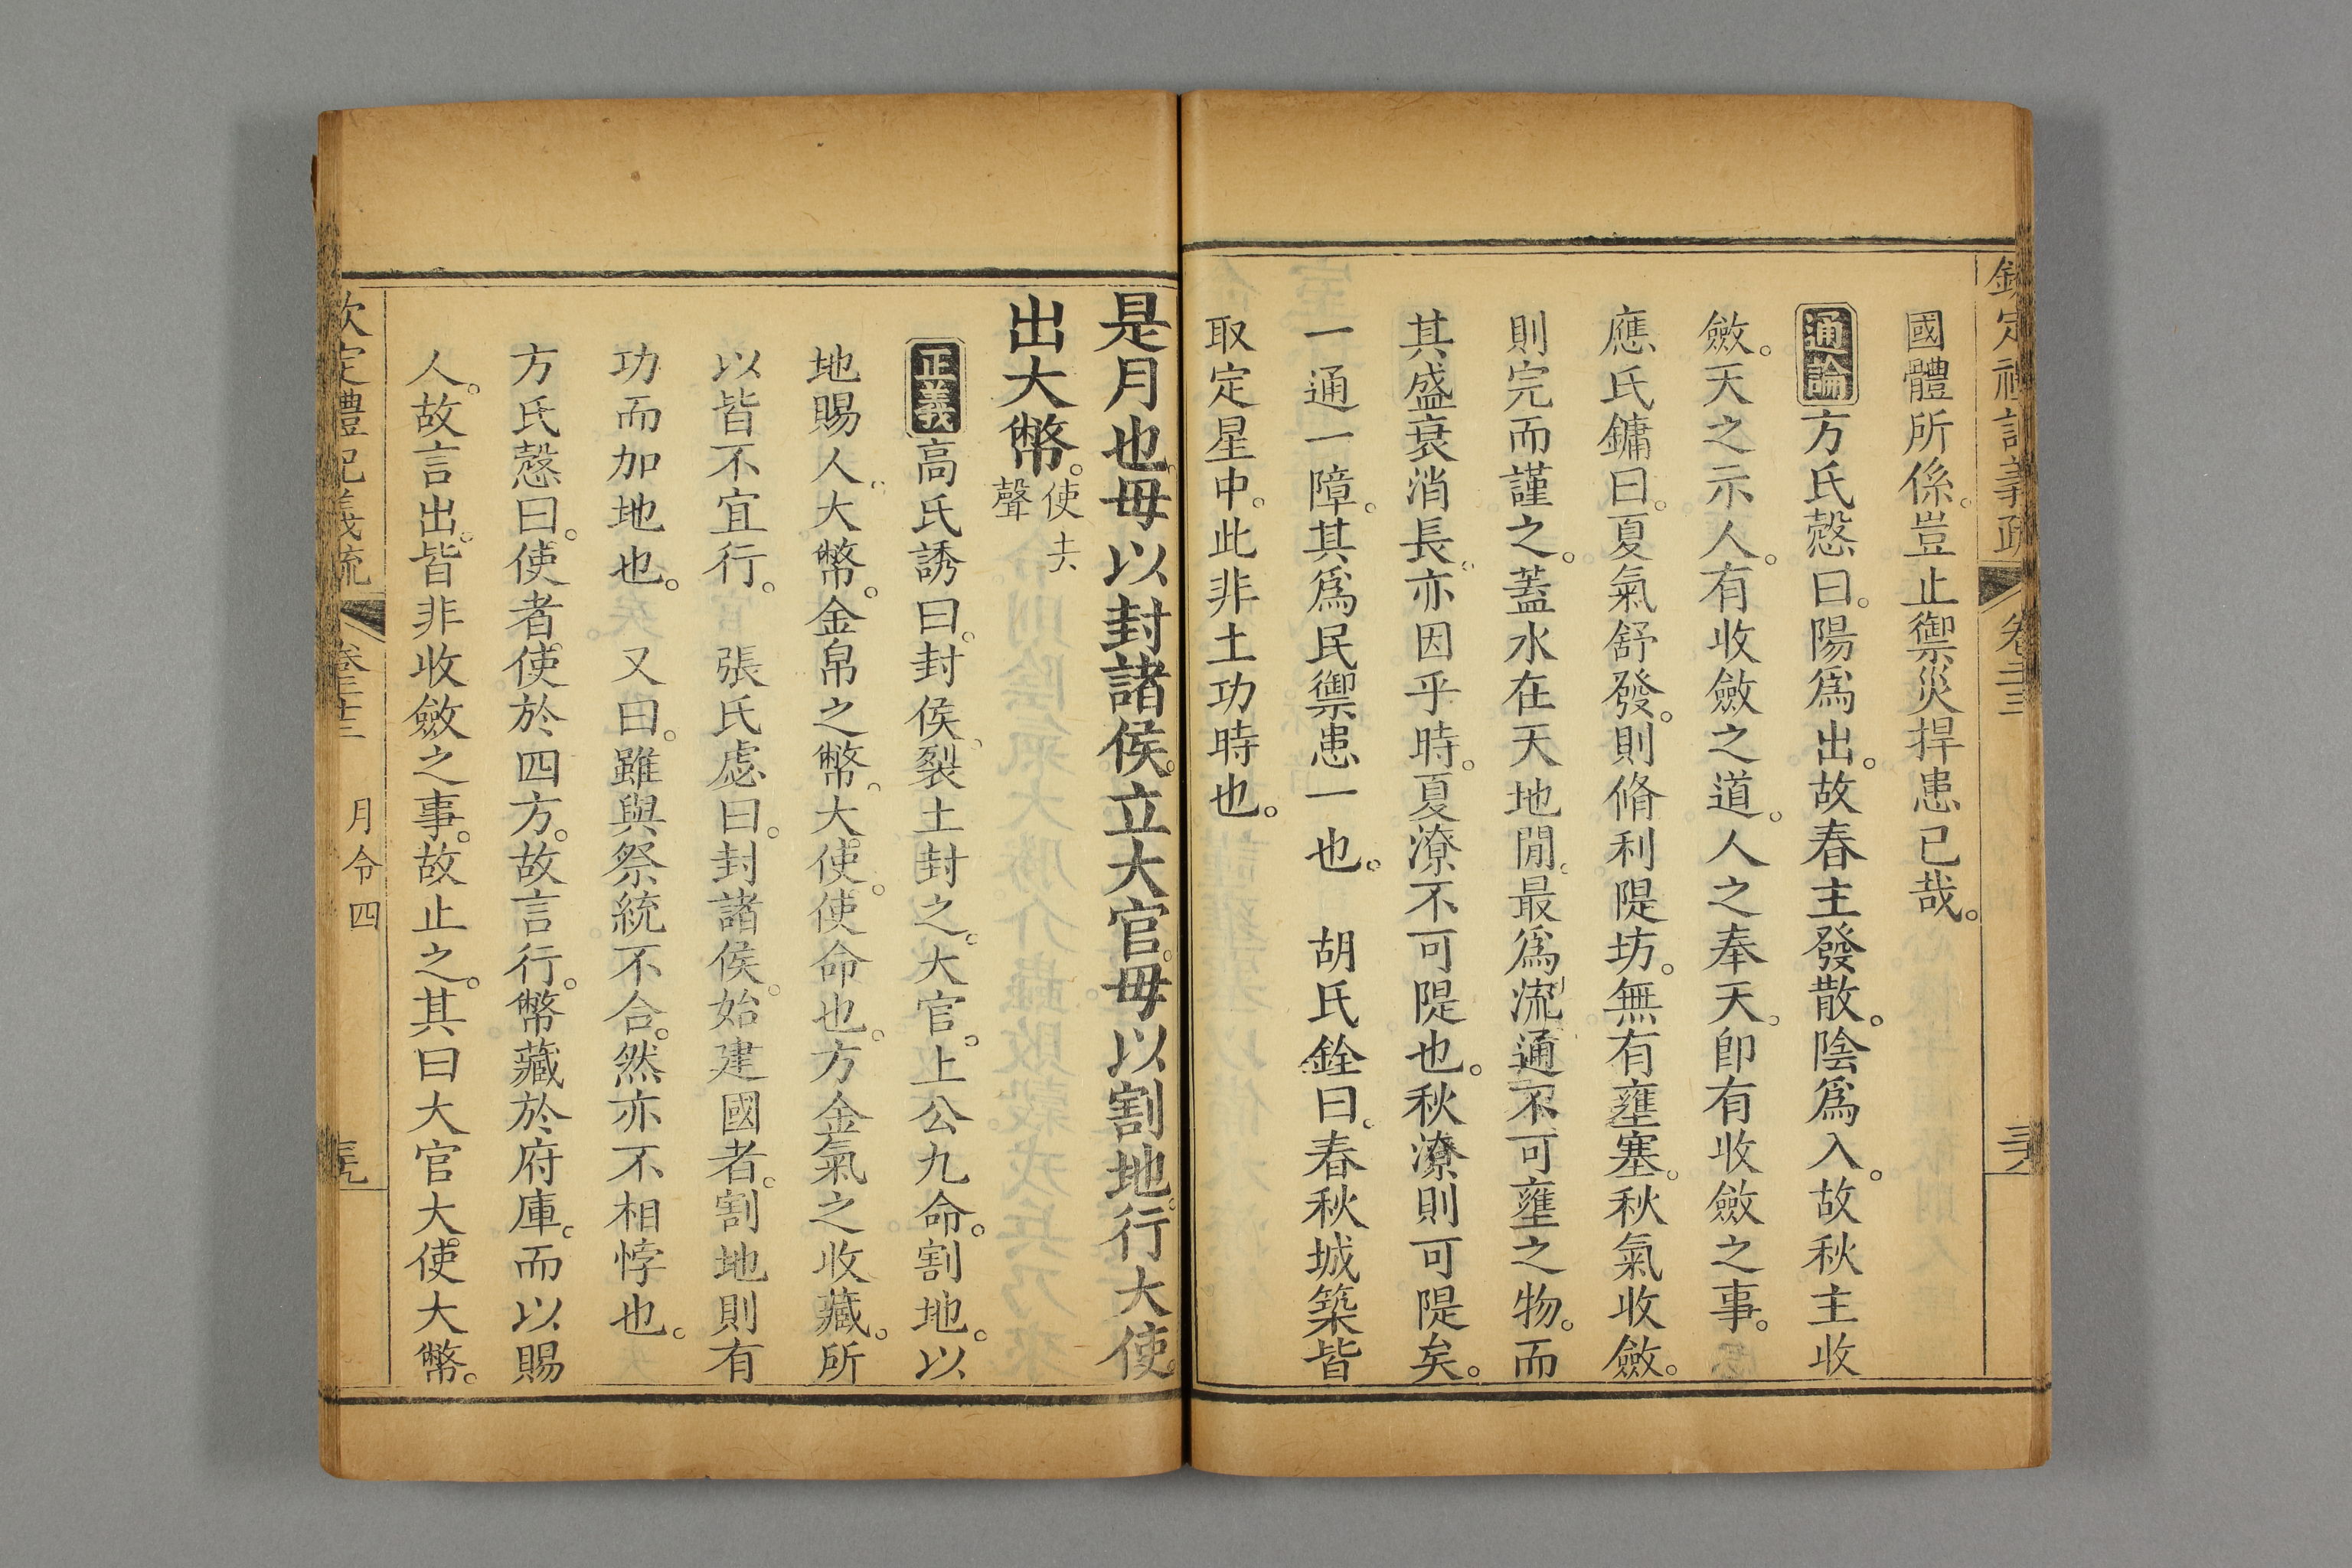 欽定禮記義疏 卷二十三
國體所係。豈止禦災捍患已哉。
通論方氏慤曰。陽爲出。故春主發散。陰爲入。故秋主收
斂。天之示人。有收斂之道。人之奉天。卽有收斂之事。
應氏鏞曰。夏氣舒發。則脩利隄坊。無有壅塞。秋氣收斂。
則完而謹之。蓋水在天地閒。最爲流通不可壅之物。而
其盛衰消長、亦因乎時。夏潦不可隄也。秋潦則可隄矣。
一通一障。其爲民禦患一也。 胡氏銓曰。春秋城築皆
取定星中。此非土功時也。
是月也。毋以封諸侯。立大官。毋以割地。行大使。
出大幣。使去聲
正義高氏誘曰。封侯、裂土封之。大官。上公九命。割地。以
地賜人、大幣。金帛之幣。大使。使命也。方金氣之收藏。所
以皆不宜行。 張氏慮曰。封諸侯。始建國者。割地則有
功而加地也。 又曰。雖與祭統不合。然亦不相悖也。
方氏慤曰。使者使於四方。故言行。幣藏於府庫。而以賜
人。故言出。皆非收斂之事。故止之。其曰大官大使大幣。
欽定禮記義疏 卷二十三 月令四